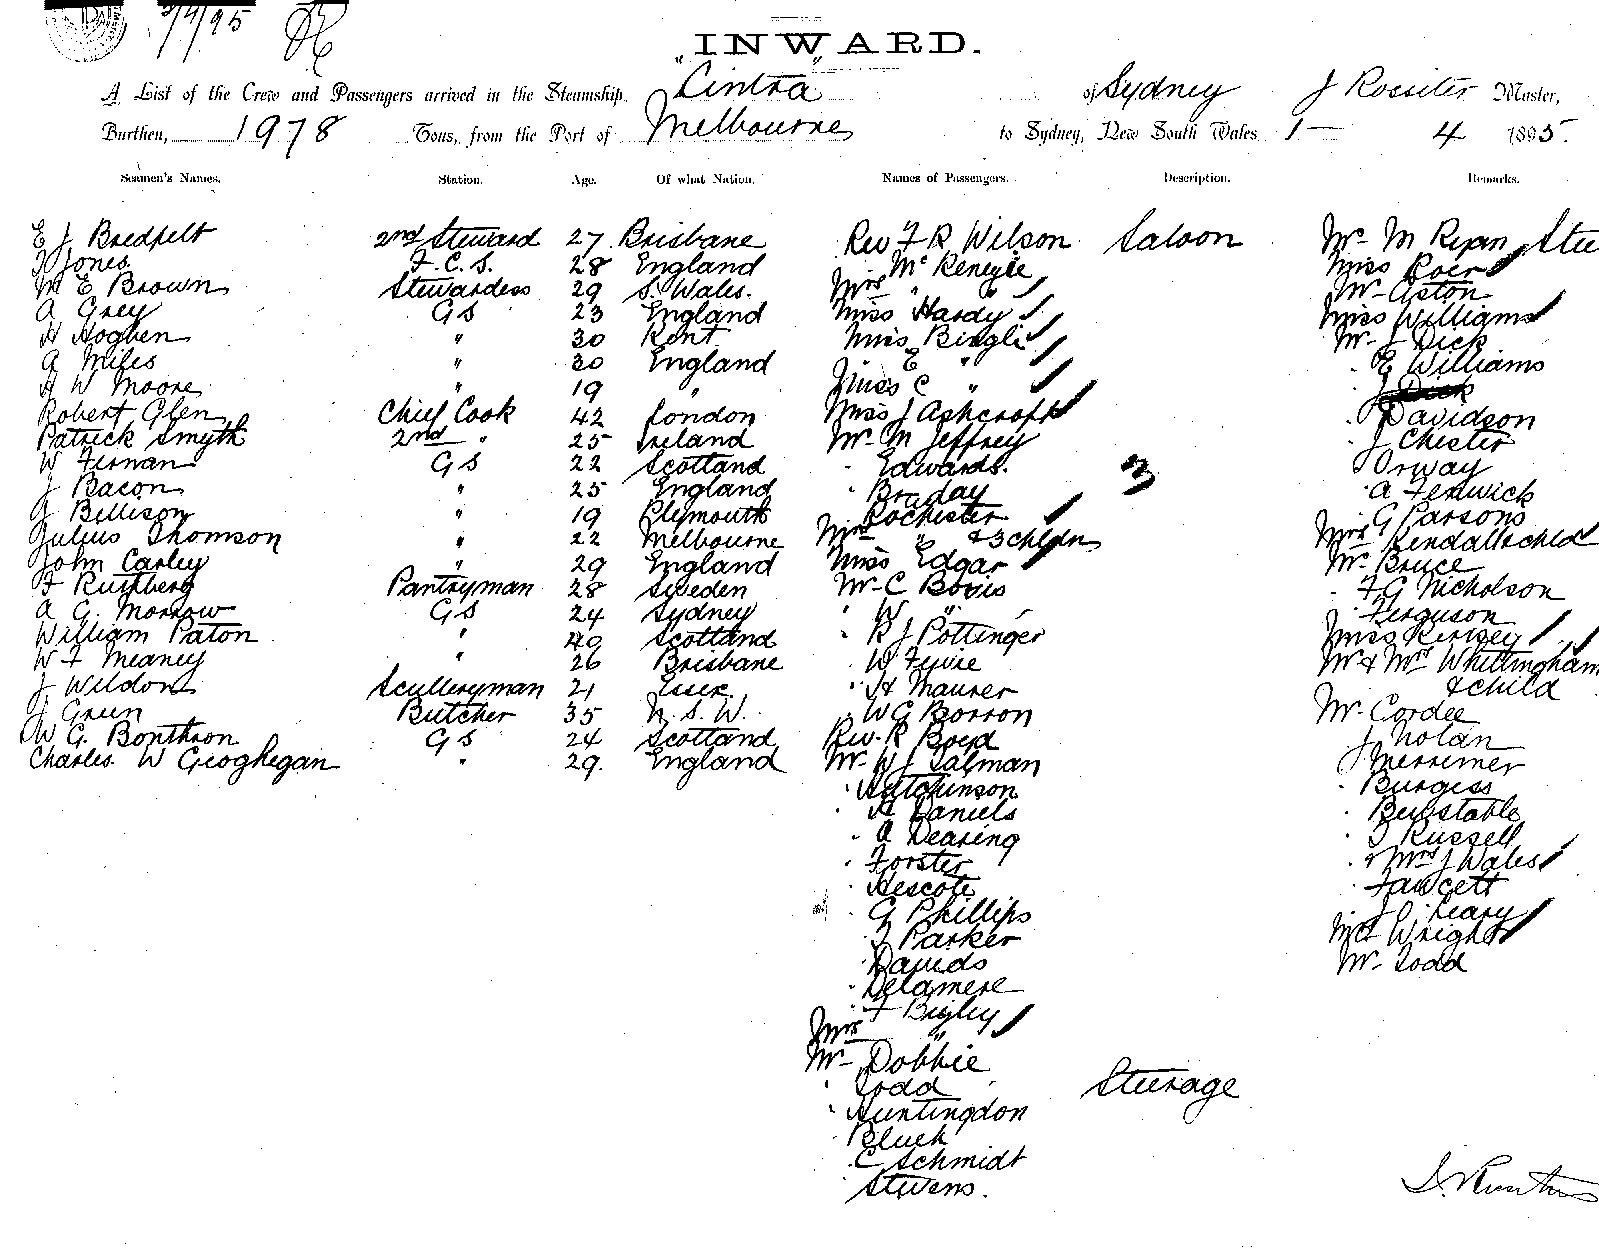 1/4/95
INWARD.
A List of the Crew and Passengers arrived in the Steamship "Cintra" of Sydney J Rossiter Master,
Burthen, 1978 Tons, from the Port of Melbourne to Sydney, New South Wales 1 — 4 1895.
Seamen's Names. Station. Age. Of what Nation. Names of Passengers. Description. Remarks.
E J Bredfelt 2nd Steward 27 Brisbane
T Jones. F. C. S. 28 England
M E Brown Stewardess 29 S. Wales.
A Grey G S 23 England
H Hogben " 30 Kent
A Miles " 30 England
H W Moore " 19 "
Robert Glen Chief Cook 42 London
Patrick Smyth 2nd " 25 Ireland
W Fernan G S 22 Scotland
J Bacon " 25 England
J Bellison " 19 Plymouth
Julius Thomson " 22 Melbourne
John Carley " 29 England
F Ruthberg Pantryman 28 Sweden
A G. Morrow G S 24 Sydney
William Paton " 40 Scotland
W F Meaney " 26 Brisbane
J Weldon Sculleryman 21 Essex.
J Green Butcher 35 N. S. W.
W G. Bonthron G S 24 Scotland
Charles W Geoghegan " 29. England
Rev F R Wilson Saloon
Mr
Mrs " "
Miss Hardy
Miss Bingle
" E "
Miss C "
Miss J Ashcroft
Mr M Jeffrey
" Edwards. 3
" Braday
" Rochester
Mrs " & 3 chldn
Miss E Edgar
Mr C Bovis
" W "
" R J Pottinger
" W Fyvie
" H Maurer
" W G Borron
Rev. R Boyd
Mr W J Salman
" Hutchinson
" H Daniels
" A Dearing
" Forster
" Hescote
" G Phillips
" T Parker
" Davids
" Delamere
" F Bigley
Mrs "
Mr Dobbie
" Todd Steerage
" Huntingdon
" Bluck
" C Schmidt
" Stevens.
Mr M Ryan Stee
Miss Roer
Mr Aston
Miss Williams
Mr J Dick
" E Williams
" J Dick
" Davidson
" J Chester
" Orway
" A Fenwick
" G Parsons
Mrs Kendall & child
Mr Bruce
" F G Nicholson
" Ferguson
Miss Kersey
Mr & Mrs Whittingham
& child
Mr Cordee
" J Nolan
" J Merrimer
" Burgess
" Bunstable
" T Russell
" & Mrs J Wales
" Fawcett
" J O'Leary
Mrs Wright
Mr Todd